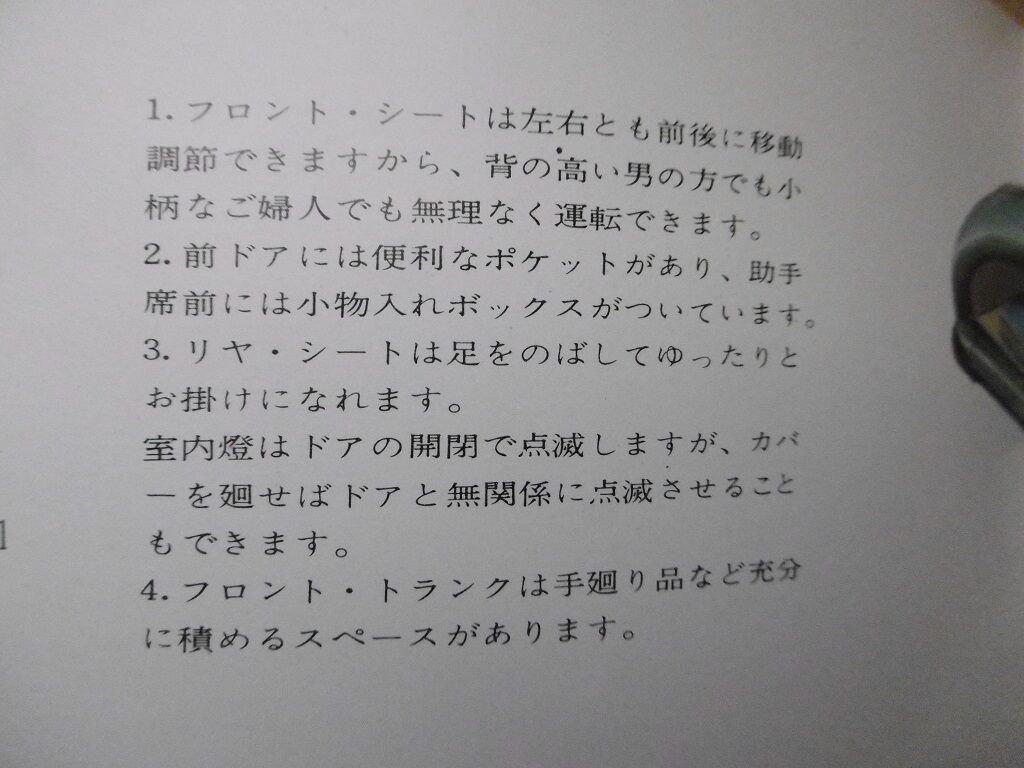 1. フロント・シートは左右とも前後に移動
調節できますから、背の高い男の方でも小
柄なご婦人でも無理なく運転できます。
2. 前ドアには便利なポケットがあり、助手
席前には小物入れボックスがついています。
3. リヤ・シートは足をのばしてゆったりと
お掛けになれます。
室内燈はドアの開閉で点滅しますが、カバ
ーを廻せばドアと無関係に点滅させること
もできます。
4. フロント・トランクは手廻り品など充分
に積めるスペースがあります。